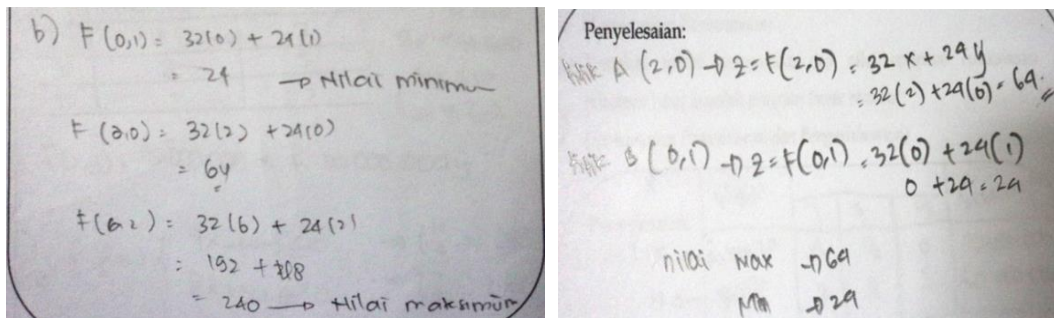 b) F (0,1) = 32(0) + 24(1)
= 24 → Nilai minimum
F (2,0) = 32(2) + 24(0)
= 64
F(6,2) = 32(6) + 24(2)
= 192 + 48
= 240 → Nilai maksimum
Penyelesaian:
A (2,0) → Z = F(2,0) = 32 x + 24 y
= 32(2) + 24(0) = 64
B (0,1) → Z = F(0,1) = 32(0) + 24(1)
0 + 24 = 24
nilai Max → 64
Min → 24